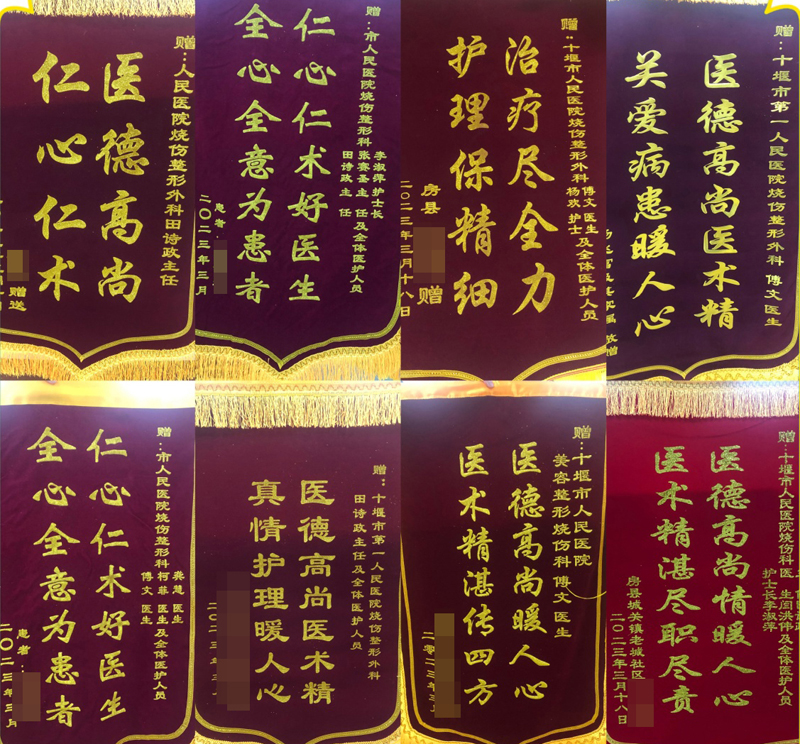 赠：人民医院烧伤整形外科田诗政主任
医德高尚
仁心仁术
赠送
赠：市人民医院烧伤整形科 李淑萍 护士长 张赛圣 主任 田诗政 主任 及全体医护人员
仁心仁术好医生
全心全意为患者
患者：
二〇二三年三月
赠：十堰市人民医院烧伤整形外科 傅文 医生 杨欢 护士 及全体医护人员
治疗尽全力
护理保精细
房县
赠
二〇二三年三月十八日
赠：十堰市第一人民医院烧伤整形外科 傅文 医生
医德高尚医术精
关爱病患暖人心
敬赠
赠：市人民医院烧伤整形科 龚慧 医生 柯菲 医生 傅文 医生 及全体医护人员
仁心仁术好医生
全心全意为患者
患者：
二〇二三年三月
赠：十堰市第一人民医院烧伤整形外科
田诗政主任及全体医护人员
医德高尚医术精
真情护理暖人心
二〇二三年三
赠：十堰市人民医院
美容整形烧伤科 傅文 医生
医德高尚暖人心
医术精湛传四方
二零二三年三
赠：十堰市人民医院烧伤科医生闫洪伟及全体医护人员
护士长李淑萍
医德高尚情暖人心
医术精湛尽职尽责
房县城关镇老城社区
二〇二三年三月十八日